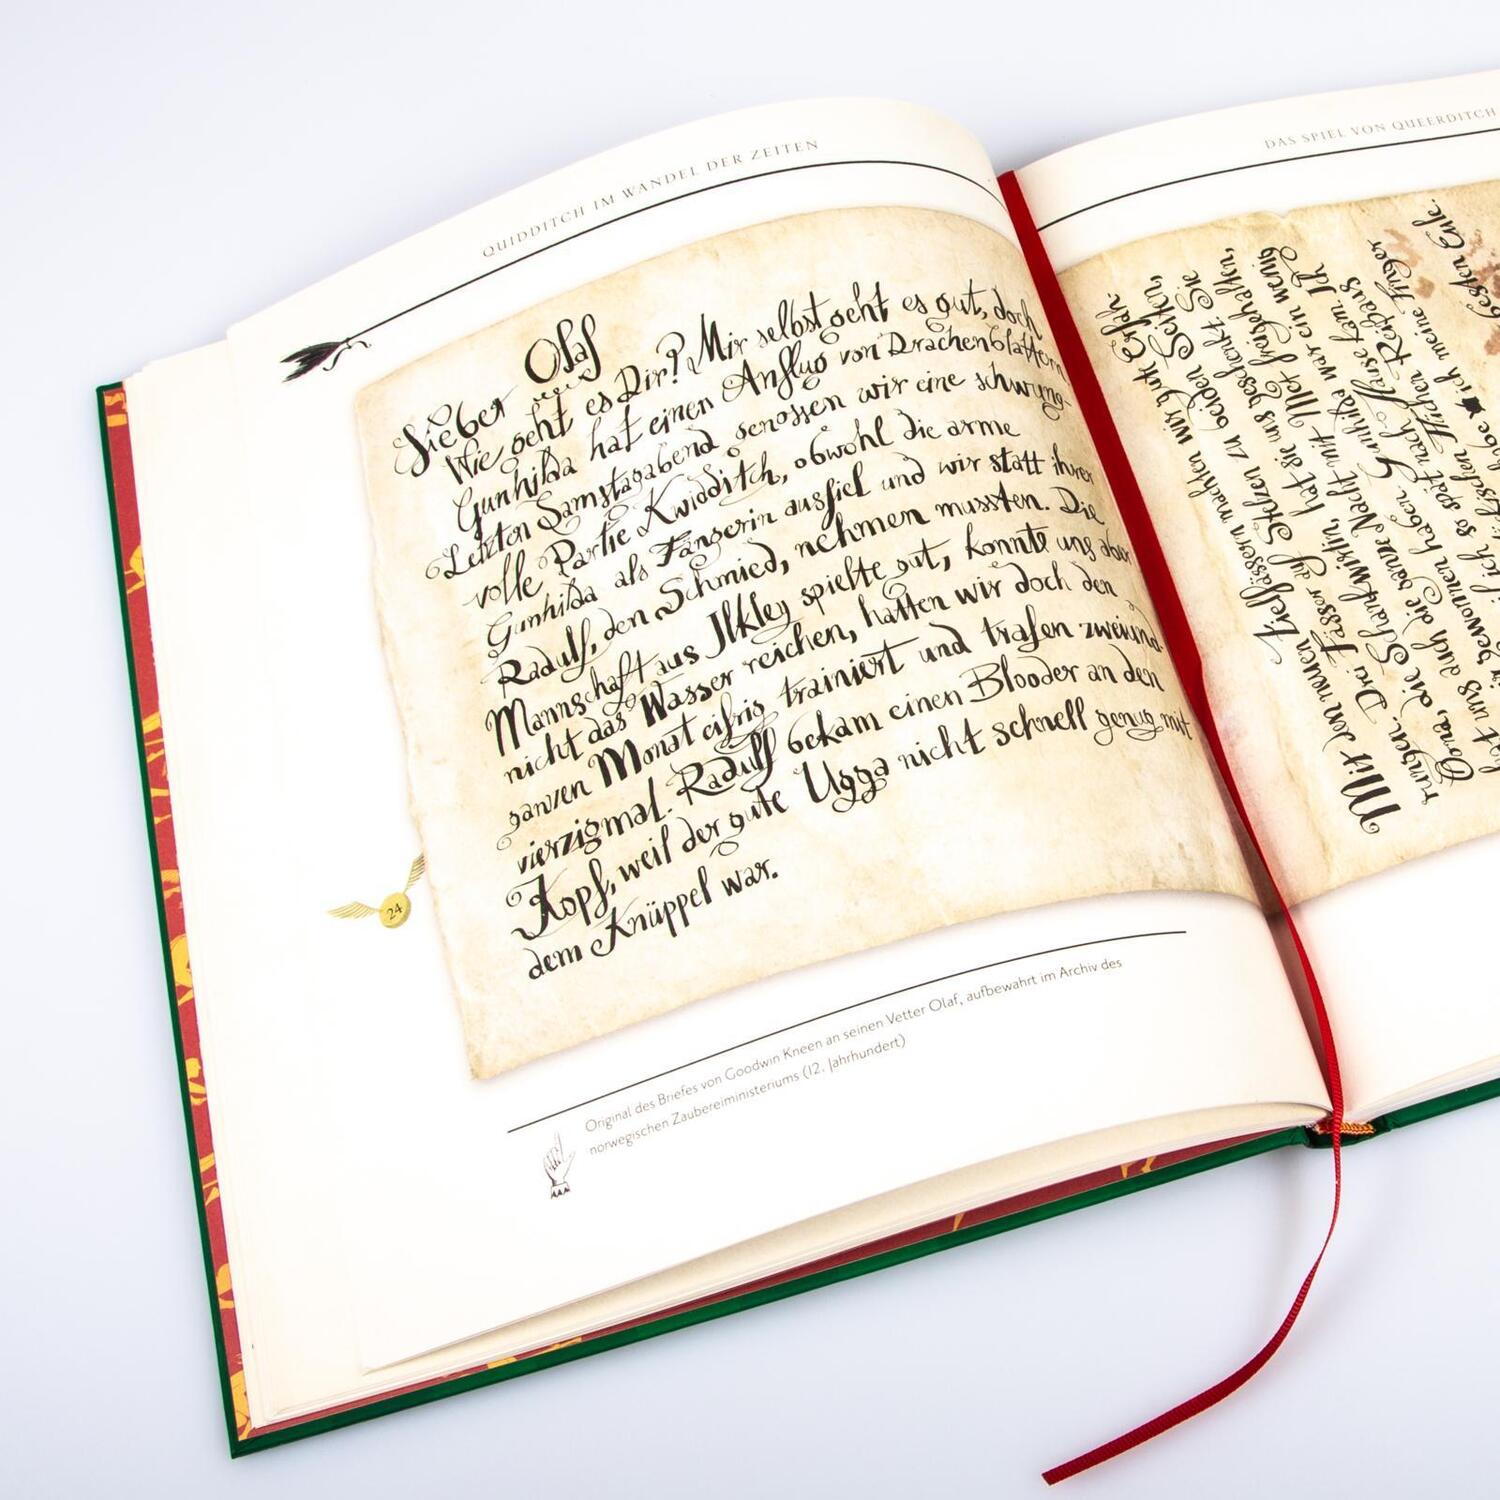 QUIDDITCH IM WANDEL DER ZEITEN
Lieber Olaf
Wie geht es Dir? Mir selbst geht es gut, doch
Gunhilda hat einen Anflug von Drachenblattern.
Letzten Samstagabend genossen wir eine schwung-
volle Partie Kwidditch, obwohl die arme
Gunhilda als Fängerin ausfiel und wir statt ihrer
Radulf, den Schmied, nehmen mussten. Die
Mannschaft aus Ilkley spielte gut, konnte uns aber
nicht das Wasser reichen, hatten wir doch den
ganzen Monat eifrig trainiert und trafen zweiund-
vierzigmal. Radulf bekam einen Blooder an den
Kopf, weil der gute Ugga nicht schnell genug mit
dem Knüppel war.
24
Original des Briefes von Goodwin Kneen an seinen Vetter Olaf, aufbewahrt im Archiv des
norwegischen Zaubereiministeriums (12. Jahrhundert)
DAS SPIEL VON QUEERDITCH
Mit den neuen Zielfässern machten wir gute Erfah-
rungen. Drei Fässer auf Stelzen zu beiden Seiten,
Oona, die Schankwirtin, hat sie uns geschenkt. Sie
uns auch die ganze Nacht mit Met freigehalten,
gewonnen haben. Gunhilda war ein wenig
ich so spät nach Hause kam. Ich
meine Finger
besten Eule.